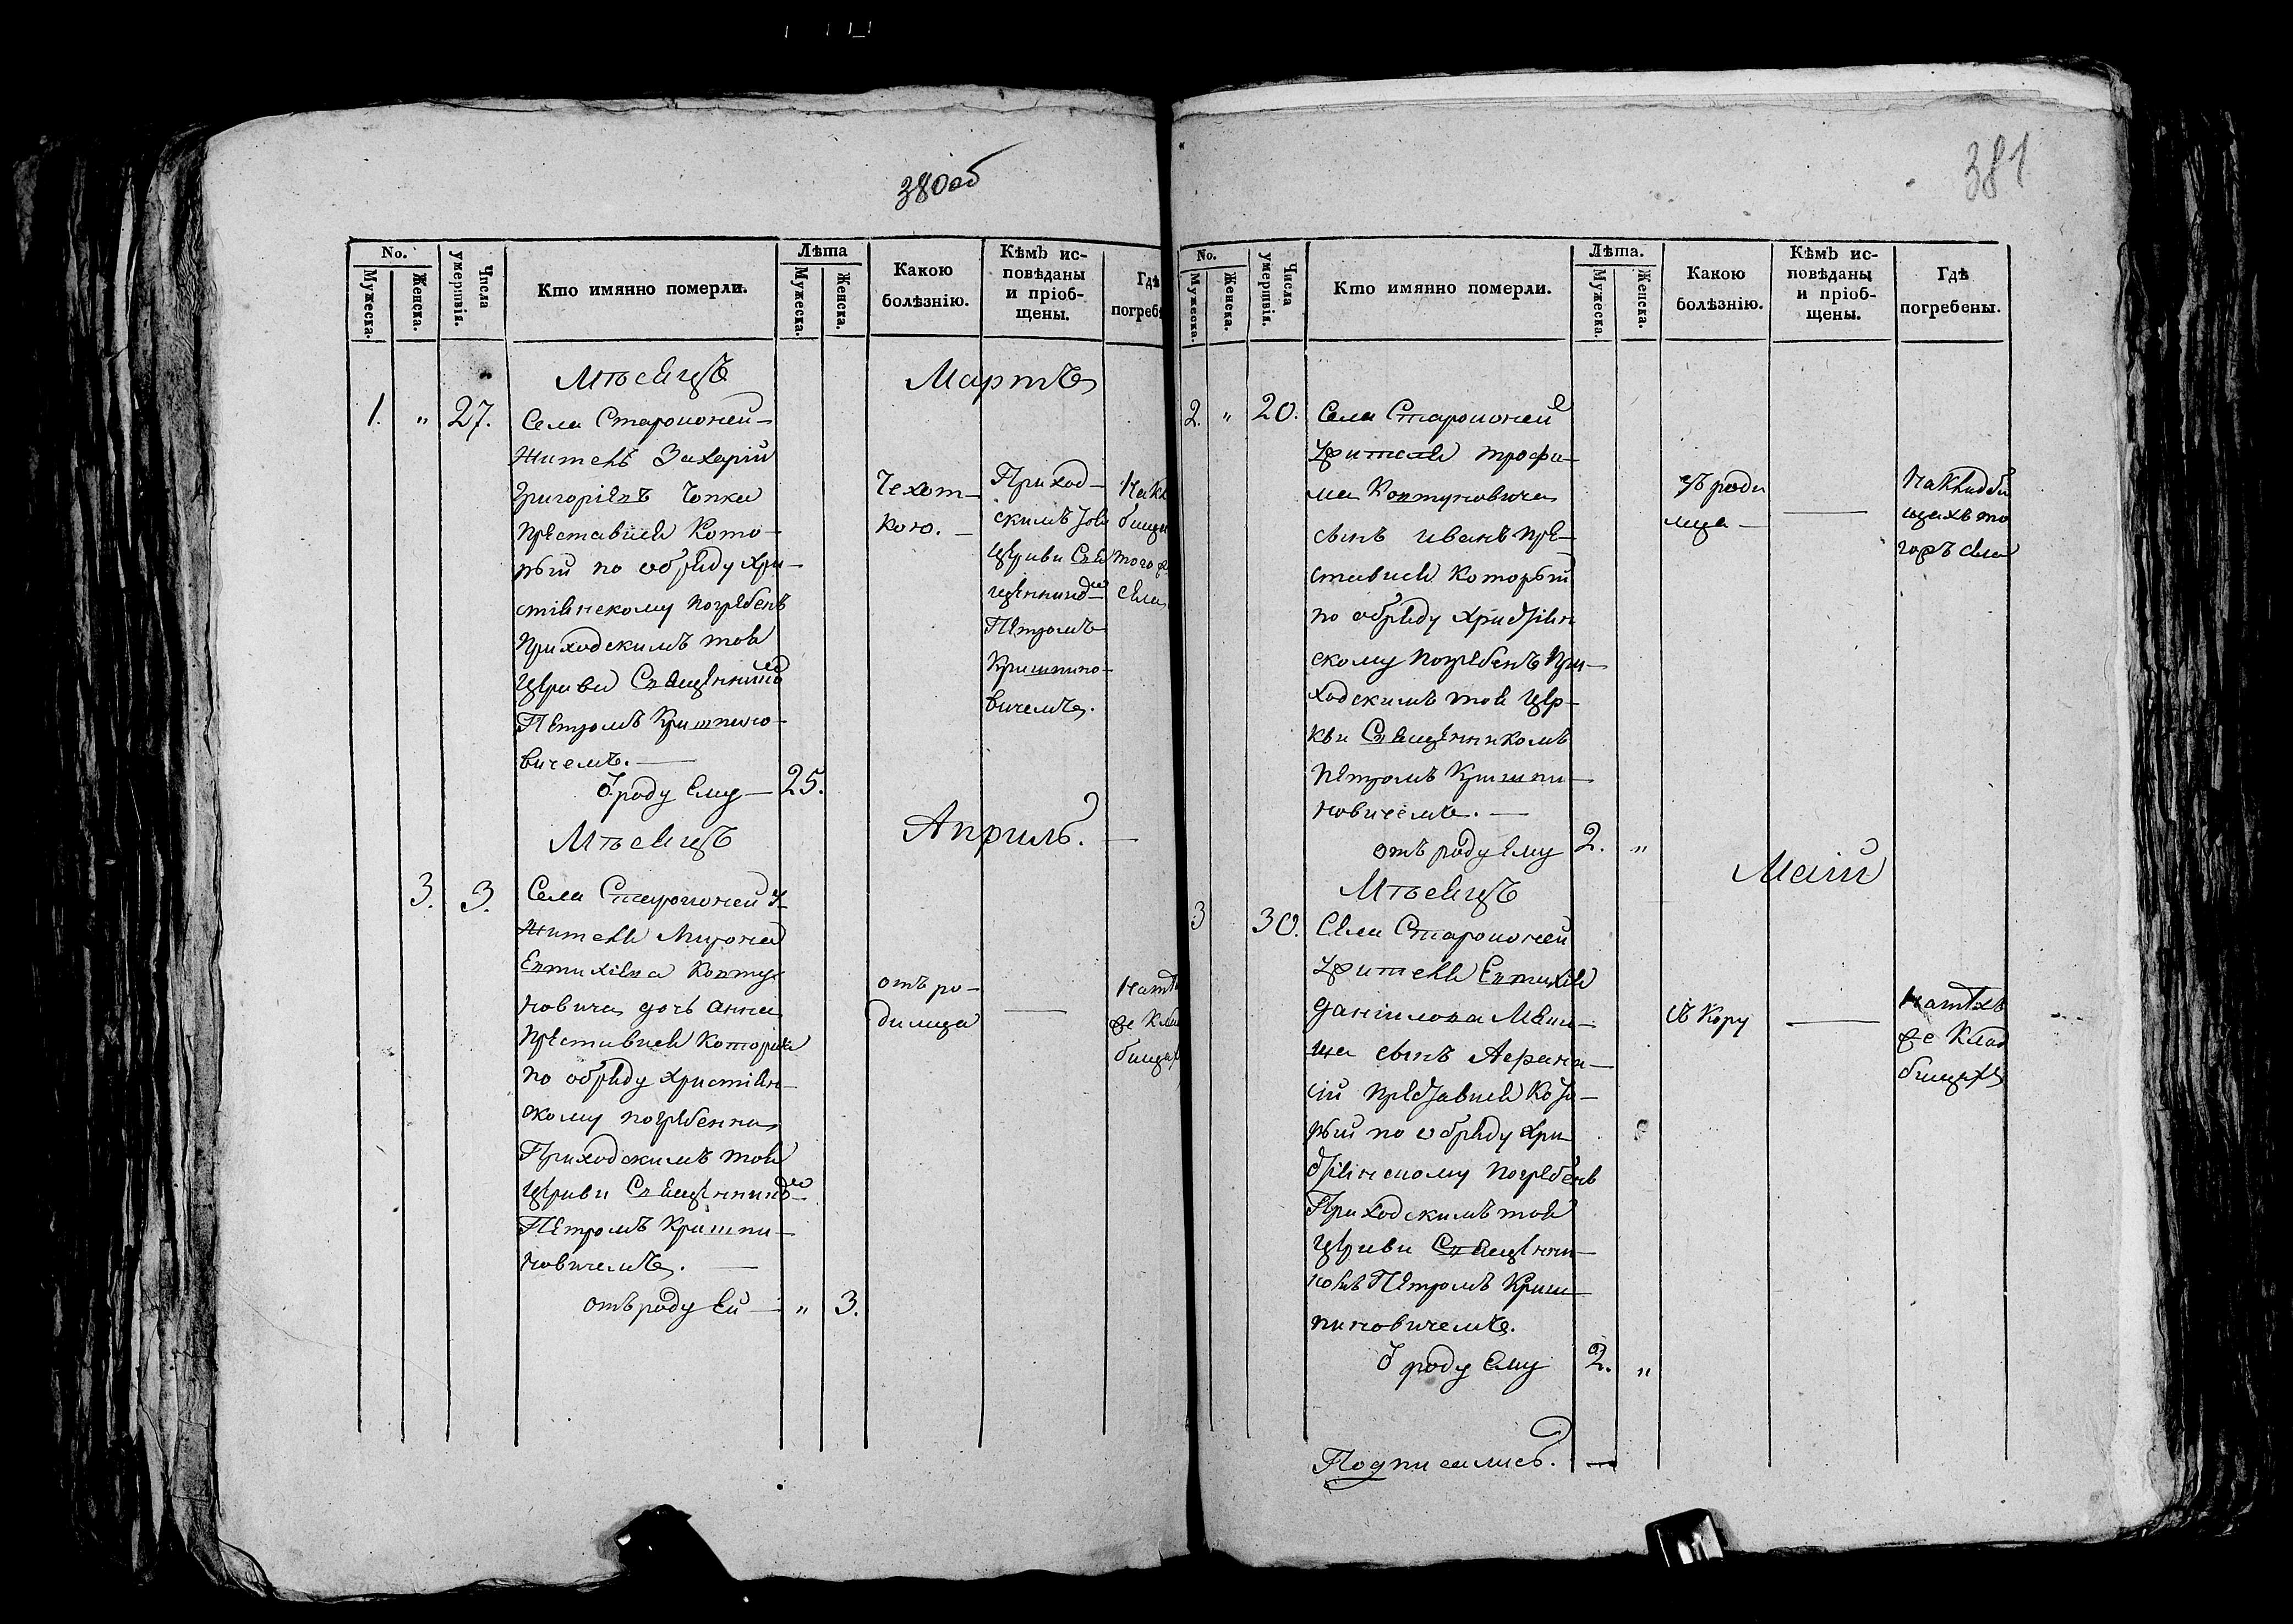 380об
No.
Мужеска.
Женска.
Числа умершвія.
Кто имянно померли.
Лѣта
Мужеска.
Женска.
Какою болѣзнію.
Кѣмъ ис-
повѣданы
и пріоб-
щены.
Гдѣ
погребе
Мѣсяцъ Мартъ
1. " 27.
Села Староконей
житель Захарій
Григоріевъ Чопка
преставися Кото-
рый по обряду Хри-
стіянскому погребенъ
Приходскимъ тоя
Церкви Священникомъ
Петромъ Кришпино-
вичемъ.
ѿ роду Ему — 25.
Чехот-
кою.
Приход-
скимъ тоя
Церкви Свя
щенником
Петромъ
Кришпино-
вичемъ.
на кл
бищи
того ж
села
Мѣсяцъ Априль.
3. 3.
Села Староконей
жителя Мирона
Евтихіева Ковту-
новича дочь Анна
преставися Которая
по обряду Христіян-
скому погребенна
Приходскимъ тоя
Церкви Священником
Петромъ Кришпи-
новичемъ.
отъ роду Ей — " 3.
отъ ро-
димца
на тѣ
же Клад
бищах
381
No.
Мужеска.
Женска.
Числа умершвія.
Кто имянно померли.
Лѣта.
Мужеска.
Женска.
Какою болѣзнію.
Кѣмъ ис-
повѣданы
и пріоб-
щены.
Гдѣ
погребены.
2. " 20.
Села Староконей
жителя Трофи-
ма Ковтуновича
сынъ Иванъ пре-
ставися Который
по обряду Христіян
скому погребенъ При-
ходскимъ тоя Цер-
кви Священникомъ
Петромъ Кришпи-
новичемъ.
отъ роду Ему 2. "
ѿ роди
мца
на Кладби
щахъ то
гожъ села
Мѣсяцъ Маій
3 30.
Села Староконей
жителя Евтихія
Даніилова
сынъ Афана-
сій преставися Кото-
рый по обряду Хри
стіянскому погребенъ
Приходскимъ тоя
Церкви Священни-
комъ Петромъ Криш-
пиновичемъ.
ѿ роду Ему 2. "
ѿ Кору
на тѣхъ
же Клад
бищахъ
Подписались.